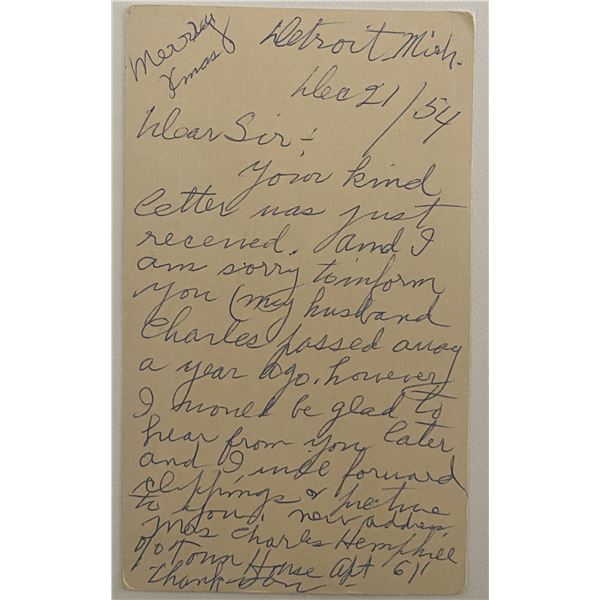 Merry
Xmas
Detroit Mich.
Dec 21/54
Dear Sir:
Your kind
letter was just
received. and I
am sorry to inform
you (my husband
Charles passed away
a year ago. however,
I would be glad to
hear from you later
and I will forward
clippings & picture
to you. new address
Mrs Charles Hemphill
% Town House Apt 611
Thank You